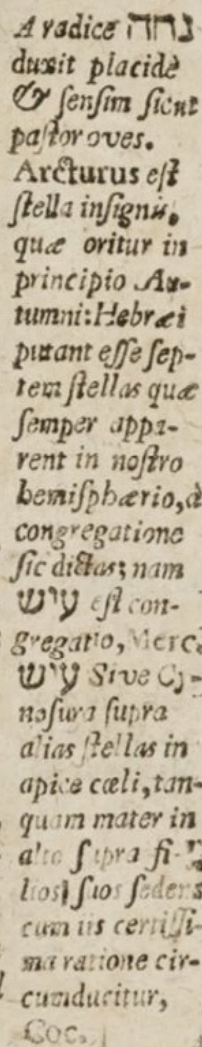 A radice נחה
duxit placidè
& ſenſim ſicut
paſtor oves.
Arcturus eſt
ſtella inſignis,
quæ oritur in
principio Au-
tumni: Hebræi
putant eſſe ſep-
tem ſtellas quæ
ſemper appa-
rent in noſtro
hemiſphærio, à
congregatione
ſic dictas; nam
עיש eſt con-
gregatio, Merc.
עיש Sive Cy-
noſura ſupra
alias ſtellas in
apice cæli, tan-
quam mater in
alto ſupra fi-
lios ſuos ſedens
cum iis certiſſi-
ma ratione cir-
cumducitur,
Coc.